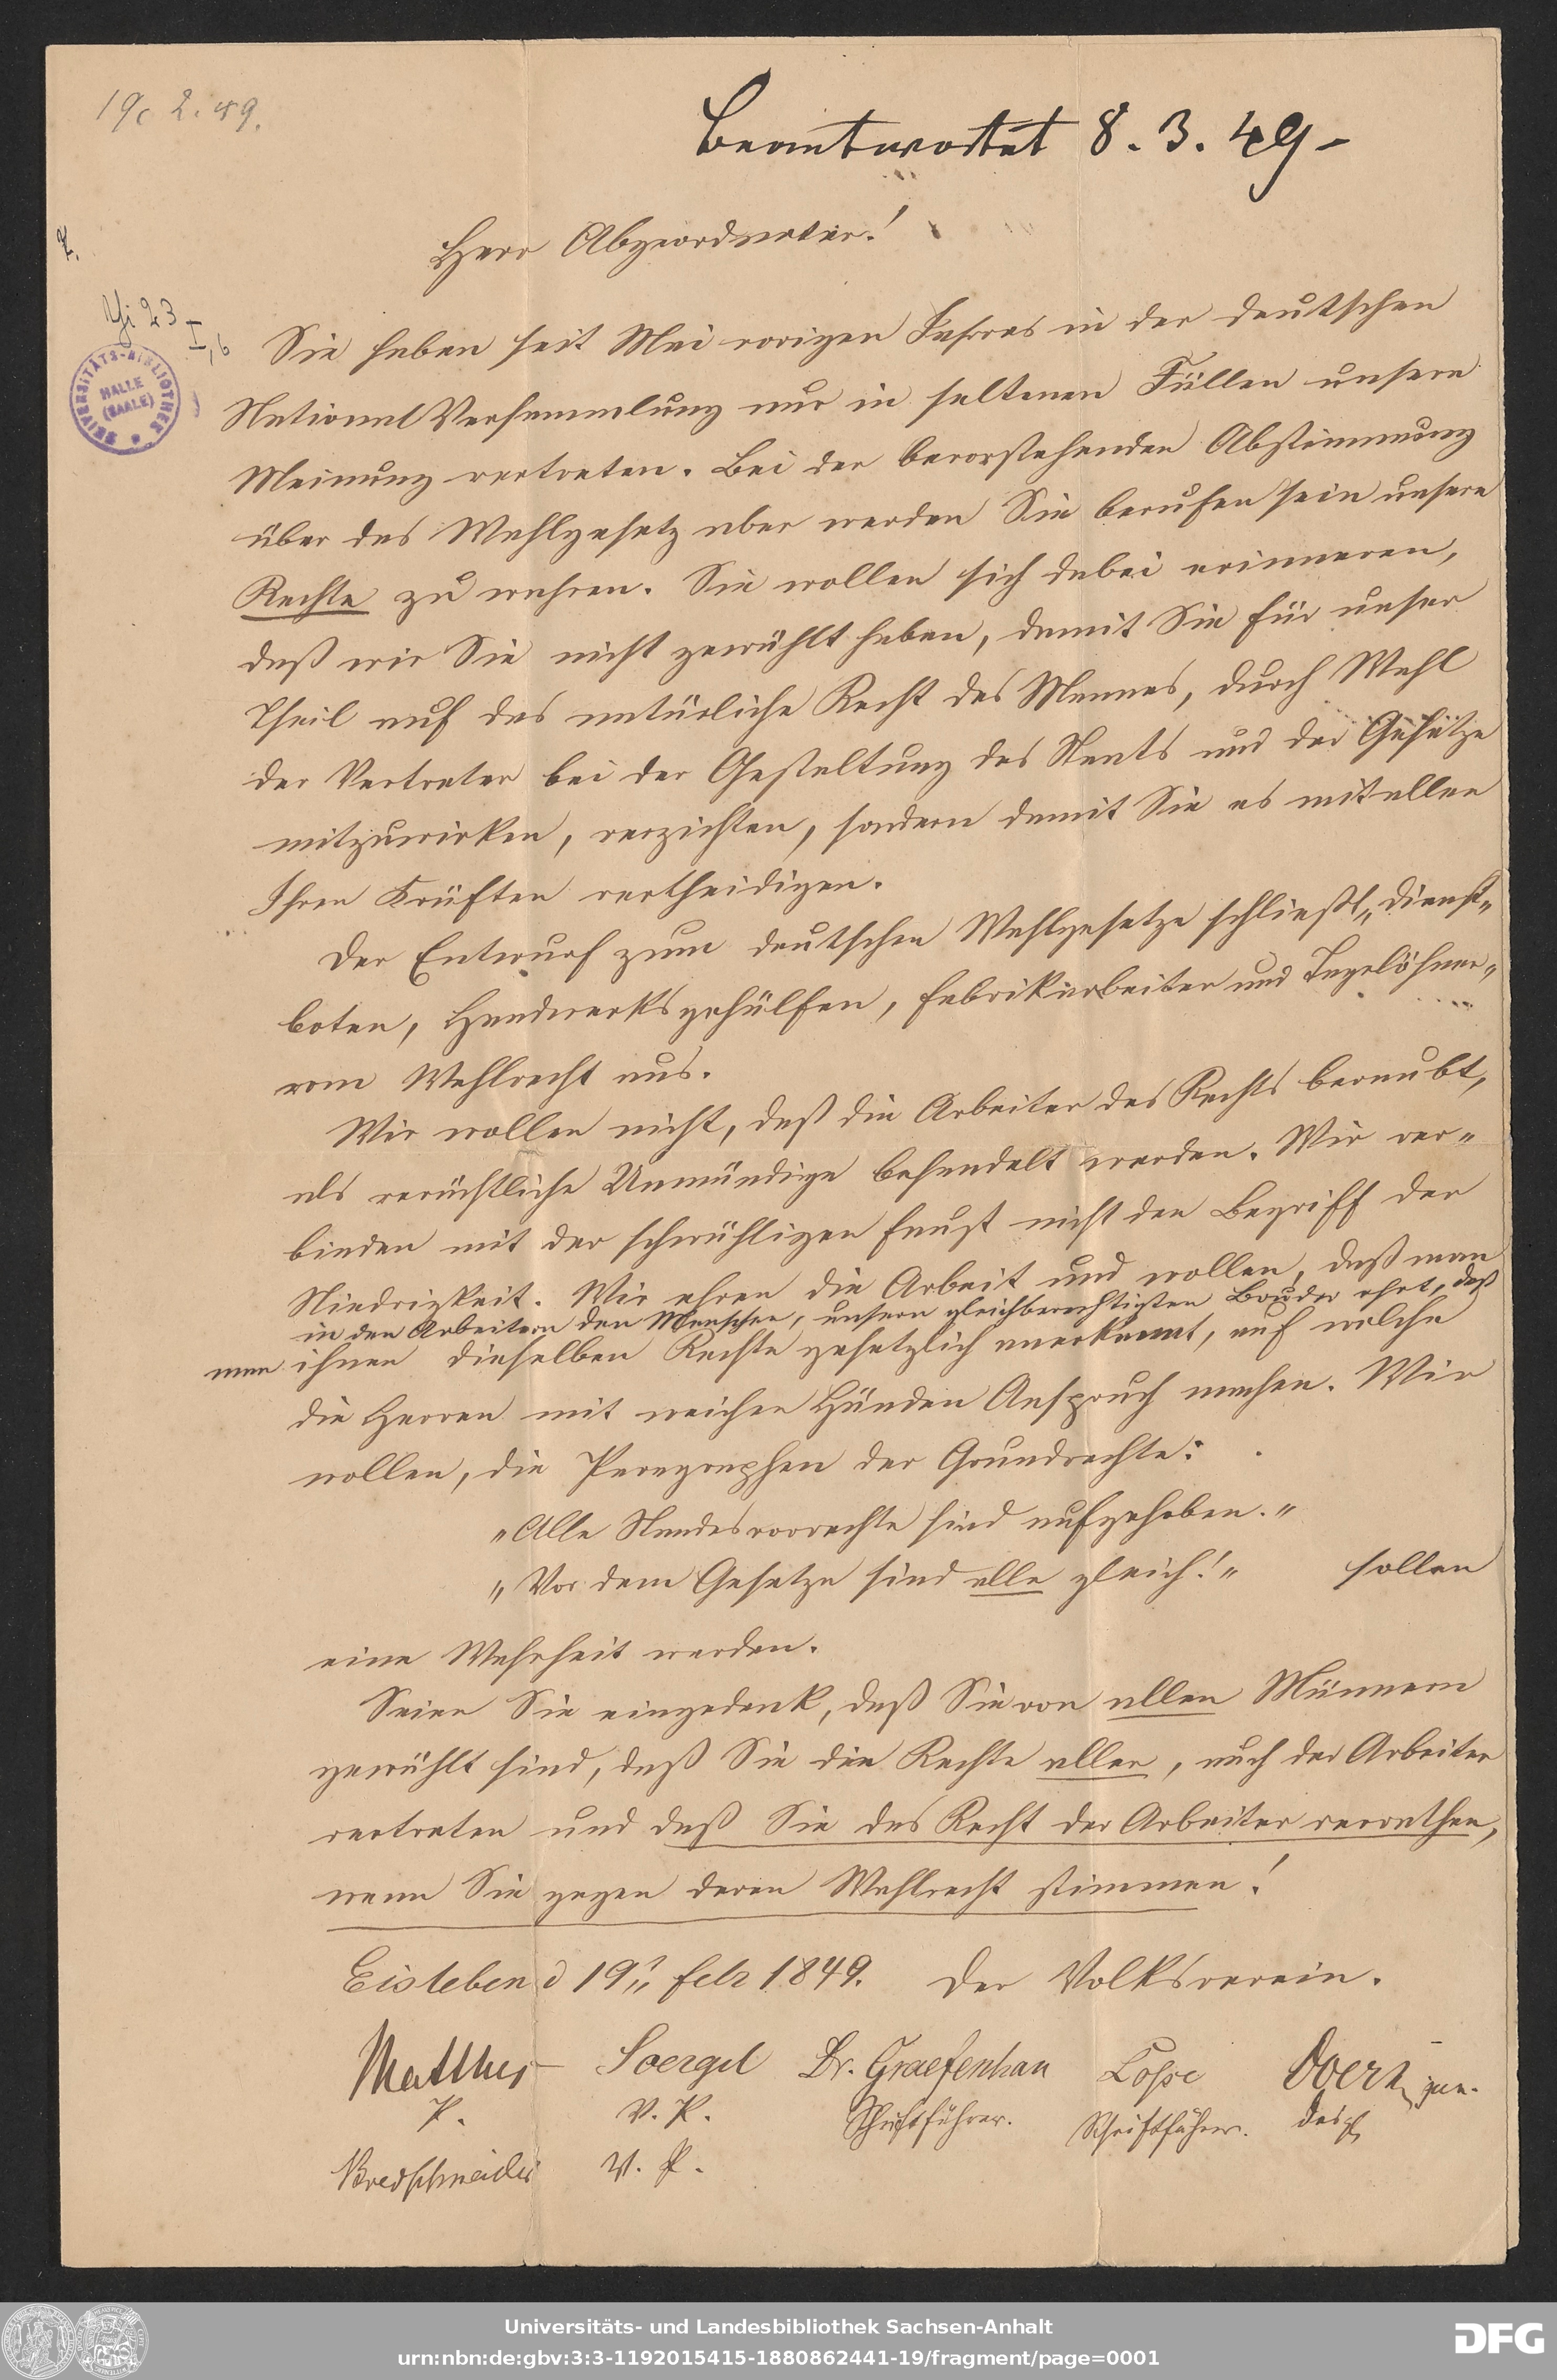 19/2. 49.
Beantwortet 8. 3. 49 -
Herr Abgeordneter!
Yi 23
I, 6
UNIVERSITÄTS-BIBLIOTHEK
HALLE
(SAALE)
Sie haben seit Mai vorigen Jahres in der deutschen
National Versammlung nur in seltenen Fällen unsere
Meinung vertreten. Bei der bevorstehenden Abstimmung
über das Wahlgesetz aber werden Sie berufen sein unsere
Rechte zu wahren. Sie wollen sich dabei erinneren,
daß wir Sie nicht gewählt haben, damit Sie für unser
Theil auf das natürliche Recht des Mannes, durch Wahl
der Vertreter bei der Gestaltung des Staats und der Gesetze
mitzuwirken, verzichten, sondern damit Sie es mit allen
Ihren Kräften vertheidigen.
Der Entwurf zum deutschen Wahlgesetze schließt „Dienst-
boten, Handwerksgehülfen, Fabrikarbeiter und Tagelöhner"
vom Wahlrecht aus.
Wir wollen nicht, daß die Arbeiter des Rechts beraubt,
als verächtliche Unmündige behandelt werden. Wir ver-
binden mit der schwühligen Faust nicht den Begriff der
Niedrigkeit. Wir ehren die Arbeit und wollen, daß man
in den Arbeitern den Menschen, unsern gleichberechtigten Bruder ehrt, daß
man ihnen dieselben Rechte gesetzlich anerkennt, auf welche
die Herren mit weichen Händen Anspruch machen. Wir
wollen, die Paragraphen der Grundrechte:
„Alle Standesvorrechte sind aufgehoben."
„Vor dem Gesetze sind alle gleich!" sollen
eine Wahrheit werden.
Seien Sie eingedenk, daß Sie von allen Männern
gewählt sind, daß Sie die Rechte aller, auch der Arbeiter
vertreten und daß Sie das Recht der Arbeiter verrathen,
wenn Sie gegen deren Wahlrecht stimmen!
Eisleben d 19t Febr 1849. Der Volksverein.
Matthes Soergel Dr. Graefenhan Losse Doerk jun.
P. V. P. Schriftführer. Schriftführer. desgl
Bredschneider V. P.
Universitäts- und Landesbibliothek Sachsen-Anhalt
urn:nbn:de:gbv:3:3-1192015415-1880862441-19/fragment/page=0001
DFG